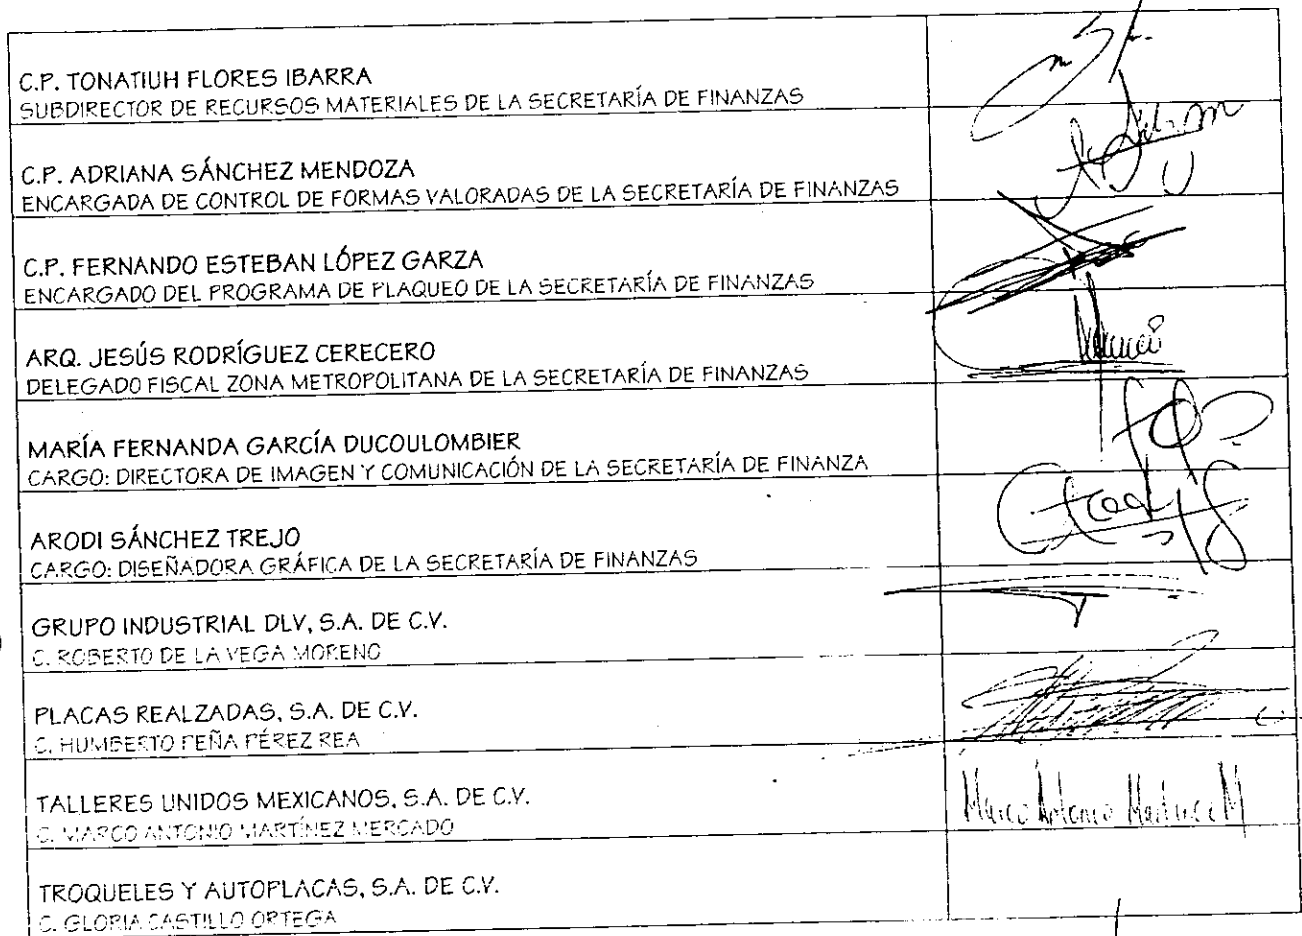 C.P. TONATIUH FLORES IBARRA
SUBDIRECTOR DE RECURSOS MATERIALES DE LA SECRETARÍA DE FINANZAS
C.P. ADRIANA SÁNCHEZ MENDOZA
ENCARGADA DE CONTROL DE FORMAS VALORADAS DE LA SECRETARÍA DE FINANZAS
C.P. FERNANDO ESTEBAN LÓPEZ GARZA
ENCARGADO DEL PROGRAMA DE PLAQUEO DE LA SECRETARÍA DE FINANZAS
ARQ. JESÚS RODRÍGUEZ CERECERO
DELEGADO FISCAL ZONA METROPOLITANA DE LA SECRETARÍA DE FINANZAS
MARÍA FERNANDA GARCÍA DUCOULOMBIER
CARGO: DIRECTORA DE IMAGEN Y COMUNICACIÓN DE LA SECRETARÍA DE FINANZA
ARODI SÁNCHEZ TREJO
CARGO: DISEÑADORA GRÁFICA DE LA SECRETARÍA DE FINANZAS
GRUPO INDUSTRIAL DLV, S.A. DE C.V.
C. ROBERTO DE LA VEGA MORENO
PLACAS REALZADAS, S.A. DE C.V.
C. HUMBERTO PEÑA PÉREZ REA
TALLERES UNIDOS MEXICANOS, S.A. DE C.V.
C. MARCO ANTONIO MARTÍNEZ MERCADO
Marco Antonio Martinez M
TROQUELES Y AUTOPLACAS, S.A. DE C.V.
C. GLORIA CASTILLO ORTEGA